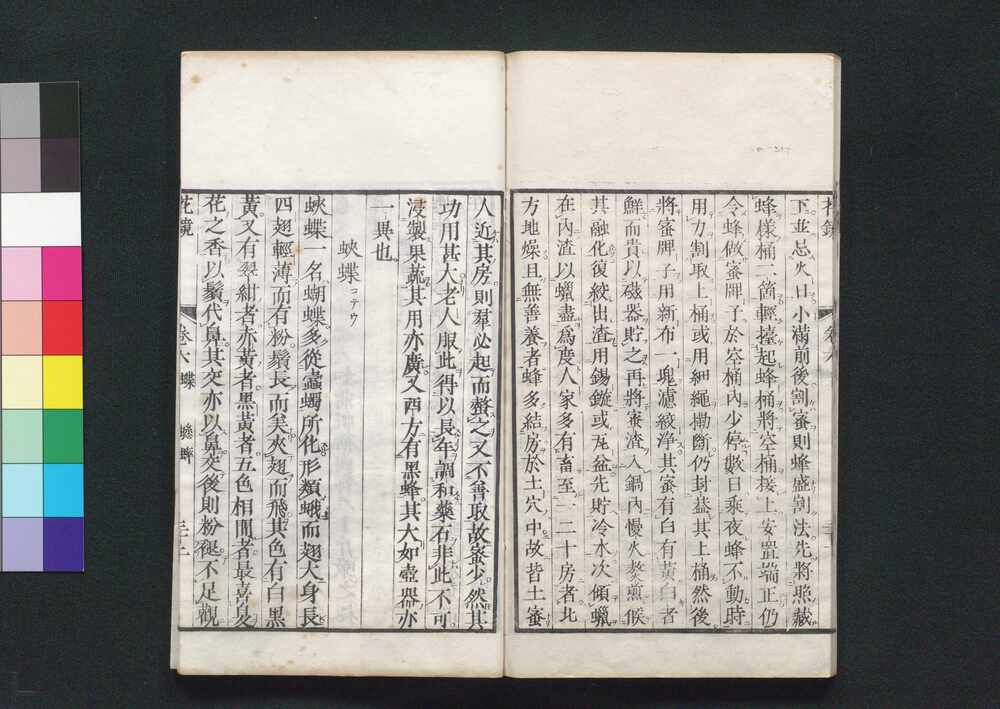 下並忌火日小滿前後割蜜則蜂盛割法先將照藏
蜂樣桶二箇輕擡起蜂桶將空桶接上安置端正仍
令蜂做蜜牌子於空桶內少停數日乘夜蜂不動時
用力割取上桶或用細繩勒斷仍封葢其上桶然後
將蜜牌子用新布一塊濾絞淨其蜜有白有黃白者
鮮而貴以磁器貯之再將蜜渣入鍋內慢火熬煎候
其融化復絞出渣用錫鏇或瓦盆先貯冷水次傾蠟
在內渣以蠟盡爲度人家多有畜至一二十房者北
方地燥且無善養者蜂多結房於土穴中故皆土蜜
人近其房則羣必起而螫之又不會取故蜜少然其
功用甚大老人服此得以長年調和藥石非此不可
浸製果蔬其用亦廣又西方有黑蜂其大如壺器亦
一異也
蛺蝶コテウ
蛺蝶一名蝴蝶多從蠹蠋所化形類蛾而翅大身長
四翅輕薄而有粉鬚長而美夾翅而飛其色有白黑
黃又有翠紺者赤黃者黑黃者五色相間者最喜臭
花之香以鬚代鼻其交亦以鼻交後則粉褪不足觀
花鏡
卷六 蝶 蟋蟀
三十二